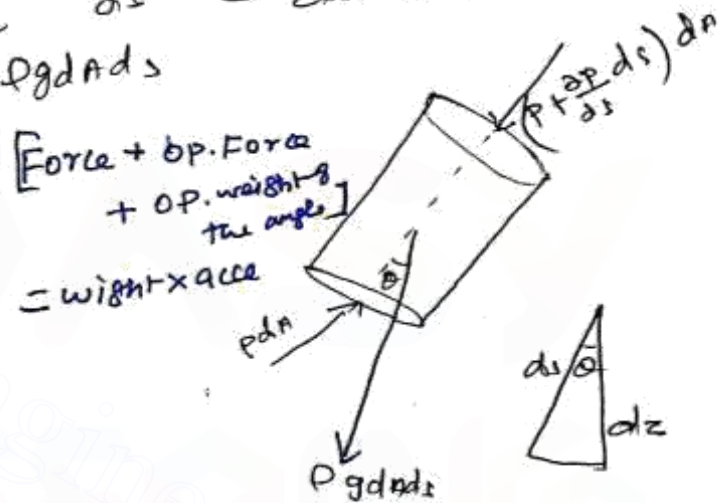 ds
ρgdAds
[Force + op. Force
+ op. weight of
the angle]
= wight × acce
(p + ∂p/∂s ds) dA
θ
pdA
ds θ
dz
ρgdAds